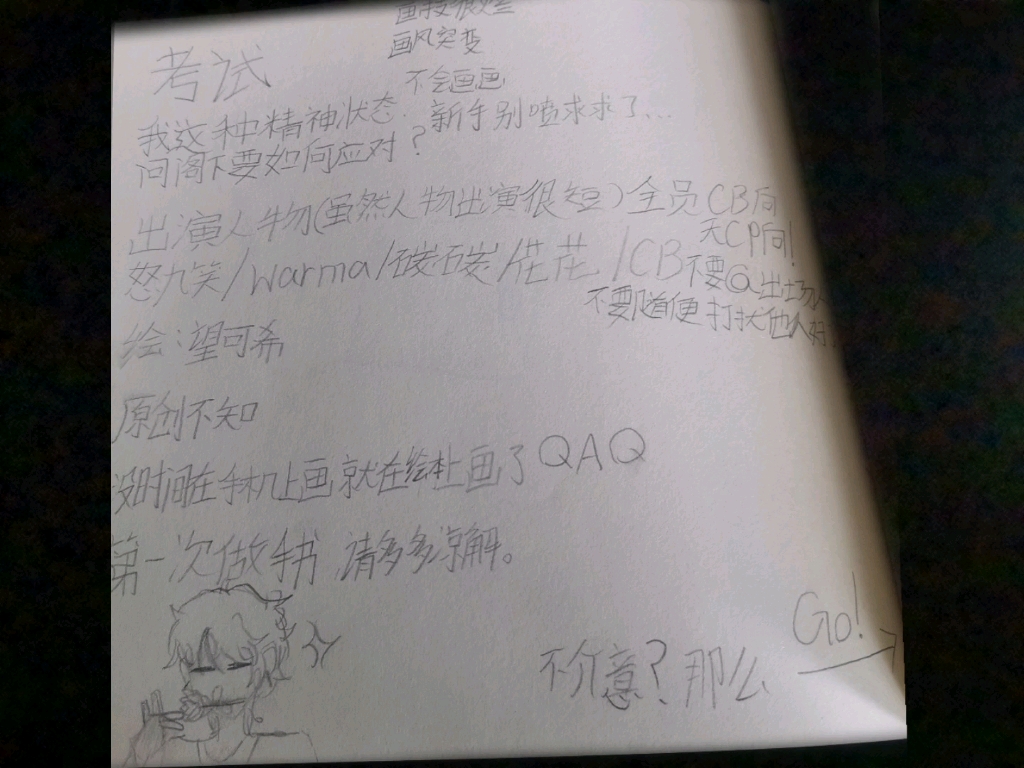 画技很烂
画风突变
考试
不会画画
我这种精神状态 新手别喷求求了...
问阁下要如何应对?
出演人物(虽然人物出演很短)全员CB向
无CP向!
怒九笑/warma/碳碳/花花/CB不要@出场人
不要随便打扰他人好
绘:望可希
原创不知
没时间在手机上画就在绘本上画了QAQ
第一次做手书,请多多谅解。
Go!
不介意?那么